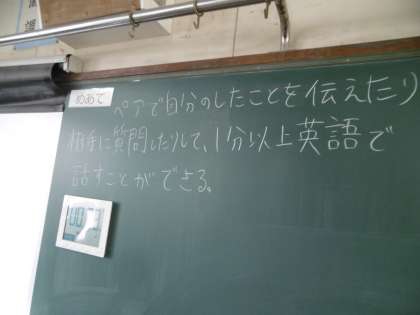 めあて
ペアで自分のしたことを伝えたり
相手に質問したりして、1分以上英語で
話すことができる。